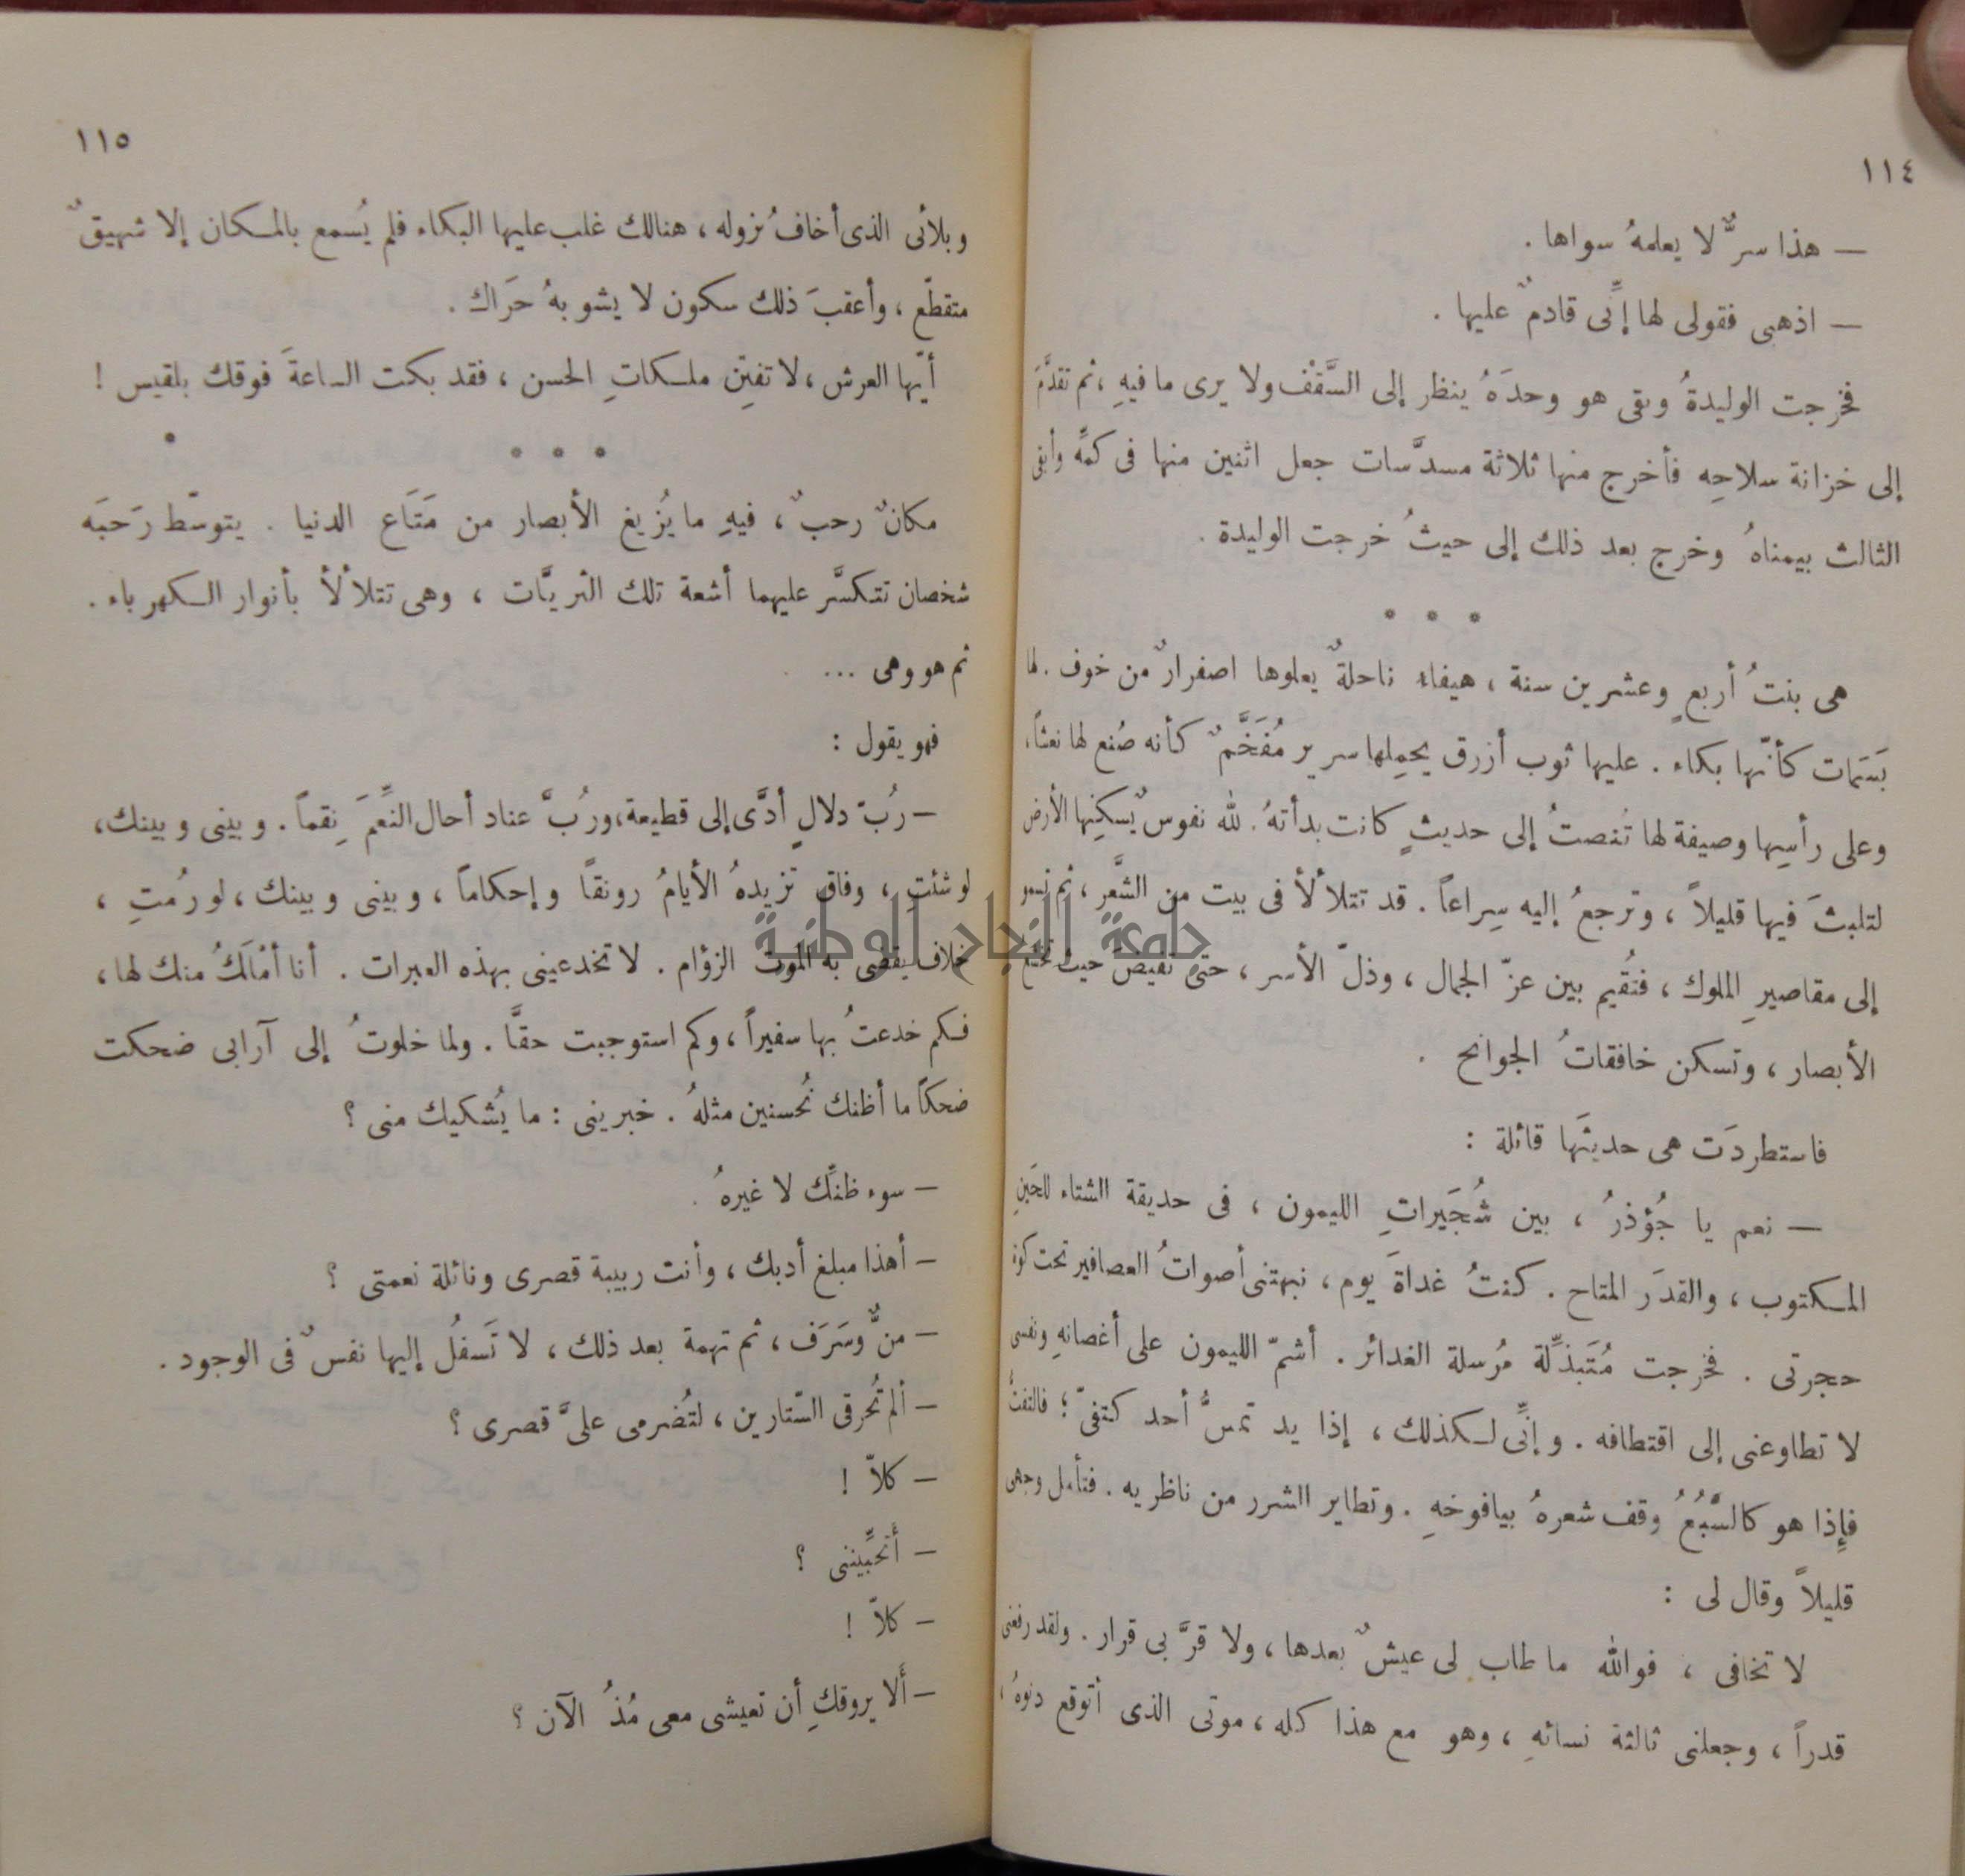 ١١٤
— هذا سرٌّ لا يعلمهُ سواها .
— اذهبى فقولى لها إنِّى قادمٌ عليها .
فخرجت الوليدةُ وبقى هو وحدَهُ ينظر إلى السَّقْف ولا يرى ما فيهِ ، ثم تقدَّمَ
إلى خزانة سلاحِه فأخرج منها ثلاثة مسدَّسات جعل اثنين منها فى كمِّه وأبقى
الثالث بيمناهُ وخرج بعد ذلك إلى حيثُ خرجت الوليدة .
* * *
هى بنتُ أربعٍ وعشرين سنة ، هيفاء ناحلةٌ يعلوها اصفرارٌ من خوف . لها
بَسَمات كأنّها بكاء . عليها ثوب أزرق يحمِلها سرير مُفَخَّمٌ كأنه صُنع لها نعشاً ،
وعلى رأسِها وصيفة لها تُنصتُ إلى حديثٍ كانت بدأتهُ . لله نفوسٌ يُسكِنِها الأرض
لتلبثَ فيها قليلاً ، وترجعُ إليه سِراعاً . قد تتلألأ فى بيت من الشَّعَر ، ثم تسمو
إلى مقاصيرِ الملوك ، فتُقيم بين عزّ الجمال ، وذلّ الأسر ، حتى تفيضَ حيثُ تخشع
الأبصار ، وتسكن خافقاتُ الجوانح .
فاستطردَت هى حديثَها قائلة :
— نعم يا جُؤذرُ ، بين شُجَيراتِ الليمون ، فى حديقة الشتاء للحَينِ
المكتوب ، والقدَر المتاح . كنتُ غداةَ يوم ، نبهتنى أصواتُ العصافير تحت كوة
حجرتى . فخرجت مُتَبذِّلة مُرسلة الغدائر . أشمّ الليمون على أغصانهِ ونفسى
لا تطاوعنى إلى اقتطافه . وإنِّى لكذلك ، إذا يد تمسُّ أحد كتفىّ ؛ فالتفتُّ
فإِذا هو كالسَّبُعُ وقف شعرهُ بيافوخهِ . وتطاير الشرر من ناظريه . فتأمل وجهى
قليلاً وقال لى :
لا تخافى ، فوالله ما طاب لى عيشٌ بعدها ، ولا قرَّ بى قرار . ولقد رفعنى
قدراً ، وجعلنى ثالثة نسائهِ ، وهو مع هذا كله ، موتى الذى أتوقع دنوهُ ،
١١٥
وبلائى الذى أخافُ نزوله ، هنالك غلب عليها البكاء فلم يُسمع بالمكان إلا شهيقٌ
متقطّع ، وأعقبَ ذلك سكون لا يشوبهُ حرَاك .
أيّها العرش ، لا تفتِن ملكاتِ الحسن ، فقد بكت الساعةَ فوقك بلقيس !
* * *
مكانٌ رحبٌ ، فيهِ ما يُزيغ الأبصار من مَتَاع الدنيا . يتوسّط رَحبَه
شخصان تتكسَّر عليهما أشعة تلك الثريَّات ، وهى تتلألأ بأنوار الكهرباء .
ثم هو وهى ...
فهو يقول :
— رُبّ دلالٍ أدَّى إلى قطيعة ، ورُبَّ عناد أحال النِّعَمَ نِقماً . وبينى وبينك ،
لو شئتِ ، وفاق تزيدهُ الأيامُ رونقاً وإحكاماً ، وبينى وبينك ، لو رُمتِ ،
خلاف يقضى به الموت الزؤام . لا تخدعينى بهذه العبرات . أنا أمْلَكُ منك لها ،
فكم خدعتُ بها سفيراً ، وكم استوجبت حقَّا . ولما خلوتُ إلى آرابى ضحكت
ضحكاً ما أظنك تُحسنين مثلهُ . خبرينى : ما يُشكيك منى ؟
— سوء ظنِّك لا غيرهُ .
— أهذا مبلغ أدبك ، وأنت ربيبة قصرى ونائلة نعمتى ؟
— منٌّ وسَرَف ، ثم تهمة بعد ذلك ، لا تَسفلُ إليها نفسٌ فى الوجود .
— ألم تُحرقى السّتارين ، لتُضرمى علىَّ قصرى ؟
— كلاّ !
— أتحبِّيننى ؟
— كلاّ !
— ألا يروقكِ أن تعيشى معى مُذُ الآن ؟
جامعة النجاح الوطنية